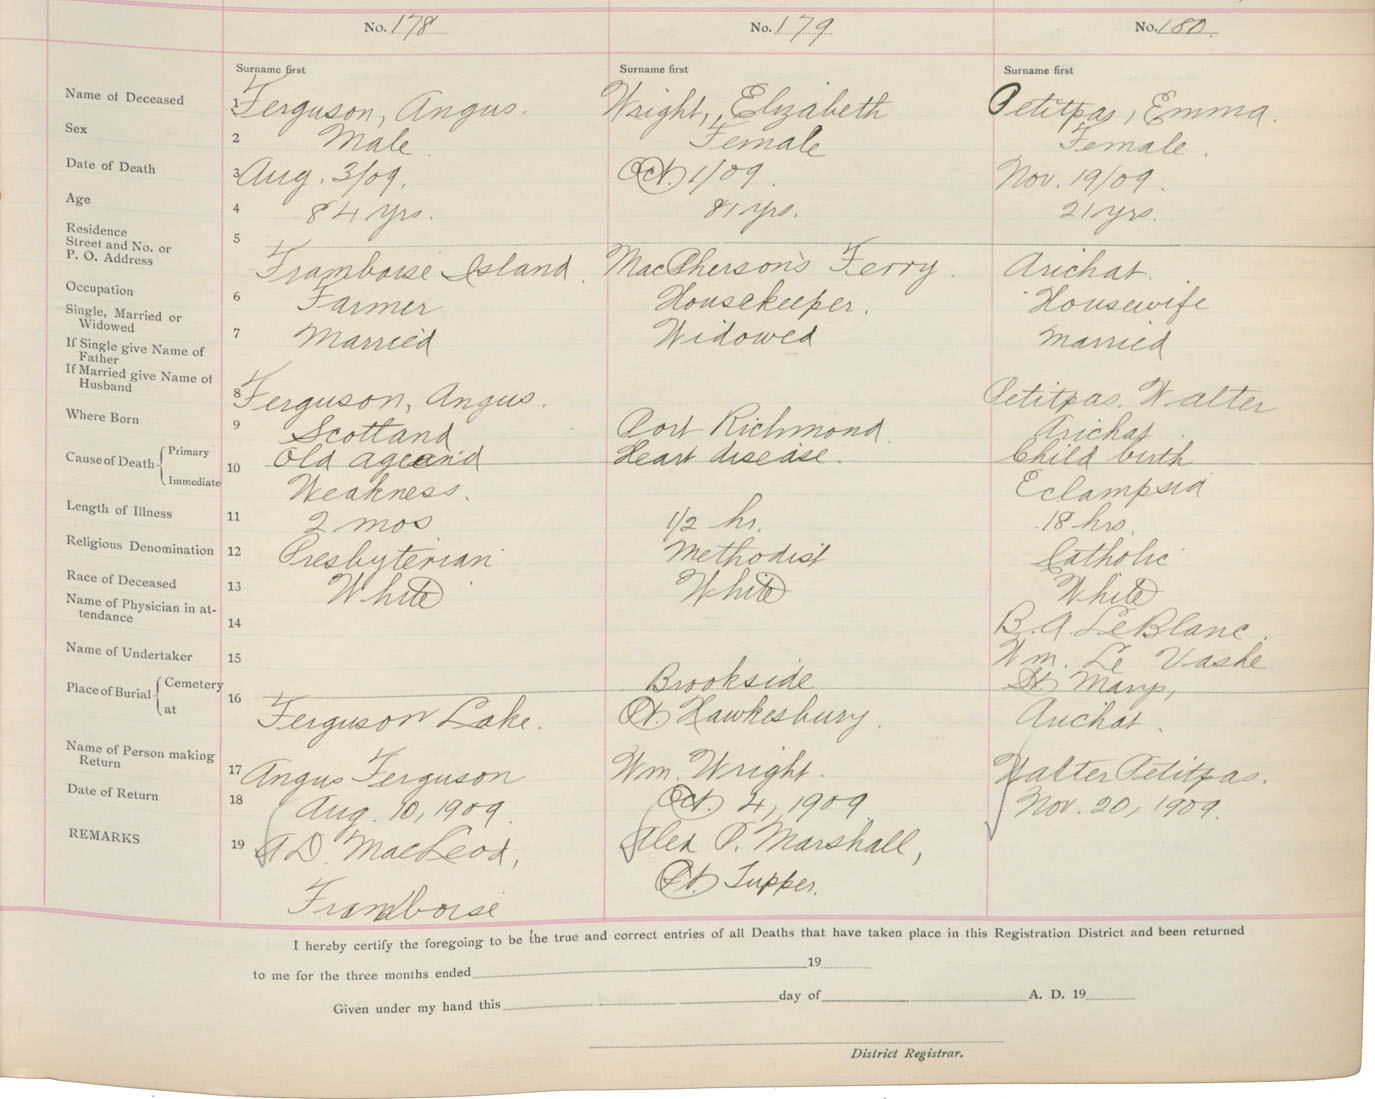 No. 178 No. 179 No. 180
Surname first Surname first Surname first
Name of Deceased 1 Ferguson, Angus. Wright, Elizabeth Petitpas, Emma.
Sex 2 Male Female Female.
Date of Death 3 Aug. 3/09. Oct. 1/09. Nov. 19/09.
Age 4 84 yrs. 81 yrs. 21 yrs.
Residence 5
Street and No. or
P. O. Address Framboise Island. MacPherson's Ferry. Arichat.
Occupation 6 Farmer Housekeeper. Housewife
Single, Married or
Widowed 7 Married Widowed Married
If Single give Name of
Father
If Married give Name of
Husband 8 Ferguson, Angus. Petitpas, Walter
Where Born 9 Scotland Port Richmond Arichat
Cause of Death Primary 10 Old age and Heart disease. Child birth
Immediate Weakness. Eclampsia
Length of Illness 11 2 mos 1/2 hr. 18 hrs.
Religious Denomination 12 Presbyterian Methodist Catholic
Race of Deceased 13 White White White
Name of Physician in at-
tendance 14 B. A. LeBlanc.
Name of Undertaker 15 Wm. Le Vashe
Place of Burial Cemetery 16 Brookside St. Marys,
at Ferguson Lake. Pt. Hawkesbury. Arichat.
Name of Person making
Return 17 Angus Ferguson Wm. Wright. Walter Petitpas.
Date of Return 18 Aug. 10, 1909. Oct. 4, 1909 Nov. 20, 1909.
REMARKS 19 A D. MacLeod, Alex P. Marshall,
Framboise Pt. Tupper.
I hereby certify the foregoing to be the true and correct entries of all Deaths that have taken place in this Registration District and been returned
to me for the three months ended 19
Given under my hand this day of A. D. 19
District Registrar.